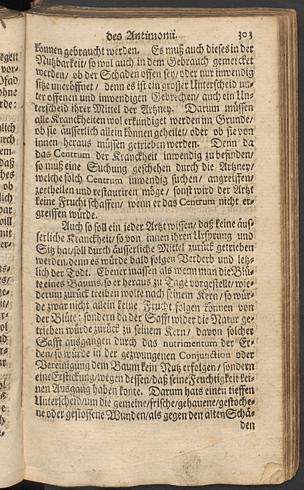 des Antimonii. 303
können gebraucht werden. Es muß auch dieses in der
Nutzbarkeit/ so wol auch in dem Gebrauch gemercket
werden/ ob der Schaden offen sey/ oder nur inwendig
sitze uneröffnet/ denn es ist ein grosser Unterscheid un-
ter offenen und inwendigen Gebrechen/ auch ein Un-
terscheid ihrer Mittel der Artzney. Darum müssen
alle Kranckheiten wol erkundiget werden im Grunde/
ob sie äusserlich allein können geheilet/ oder ob sie von
innen heraus müssen getrieben werden. Denn da
das Centrum der Kranckheit inwendig zu befinden/
so muß eine Suchung geschehen durch die Artzney/
welche solch Centrum inwendig suchen/ angreiffen/
zertheilen und restauriren möge/ sonst wird der Artzt
keine Frucht schaffen/ wenn er das Centrum nicht er-
greiffen würde.
Auch so soll ein jeder Artzt wissen/ daß keine äus-
serliche Kranckheit/ so von innen ihren Ursprung und
Sitz hat/ soll durch äusserliche Mittel zurück getrieben
werden/ denn es würde bald folgen Verderb und letz-
lich der Todt. Ebener massen als wenn man die Blü-
te eines Baums/ so er heraus zu Tage vorgestellt/ wie-
derum zurück treiben wolte nach seinem Kern/ so wür-
de zwar nicht allein keine Frucht folgen können von
der Blüte: sondern da der Safft wider die Natur ge-
trieben würde zurück zu seinem Kern/ davon solcher
Safft ausgangen durch das nutrimentum der Er-
den/ so würde in der gezwungenen Conjunction oder
Vereinigung dem Baum kein Nutz erfolgen/ sondern
eine Erstickung/ wegen dessen/ daß seine Feuchtigkeit kei-
nen Ausgang haben konte. Darum hats einen tieffen
Unterscheid/ um die gemeine/ frische/ gehauene/ gestoche-
ne oder gestossene Wunden/ als gegen den alten Schä-
den